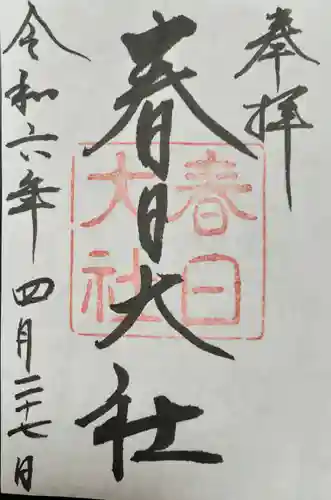 奉拝
春日大社
春日
大社
令和六年 四月二十七日